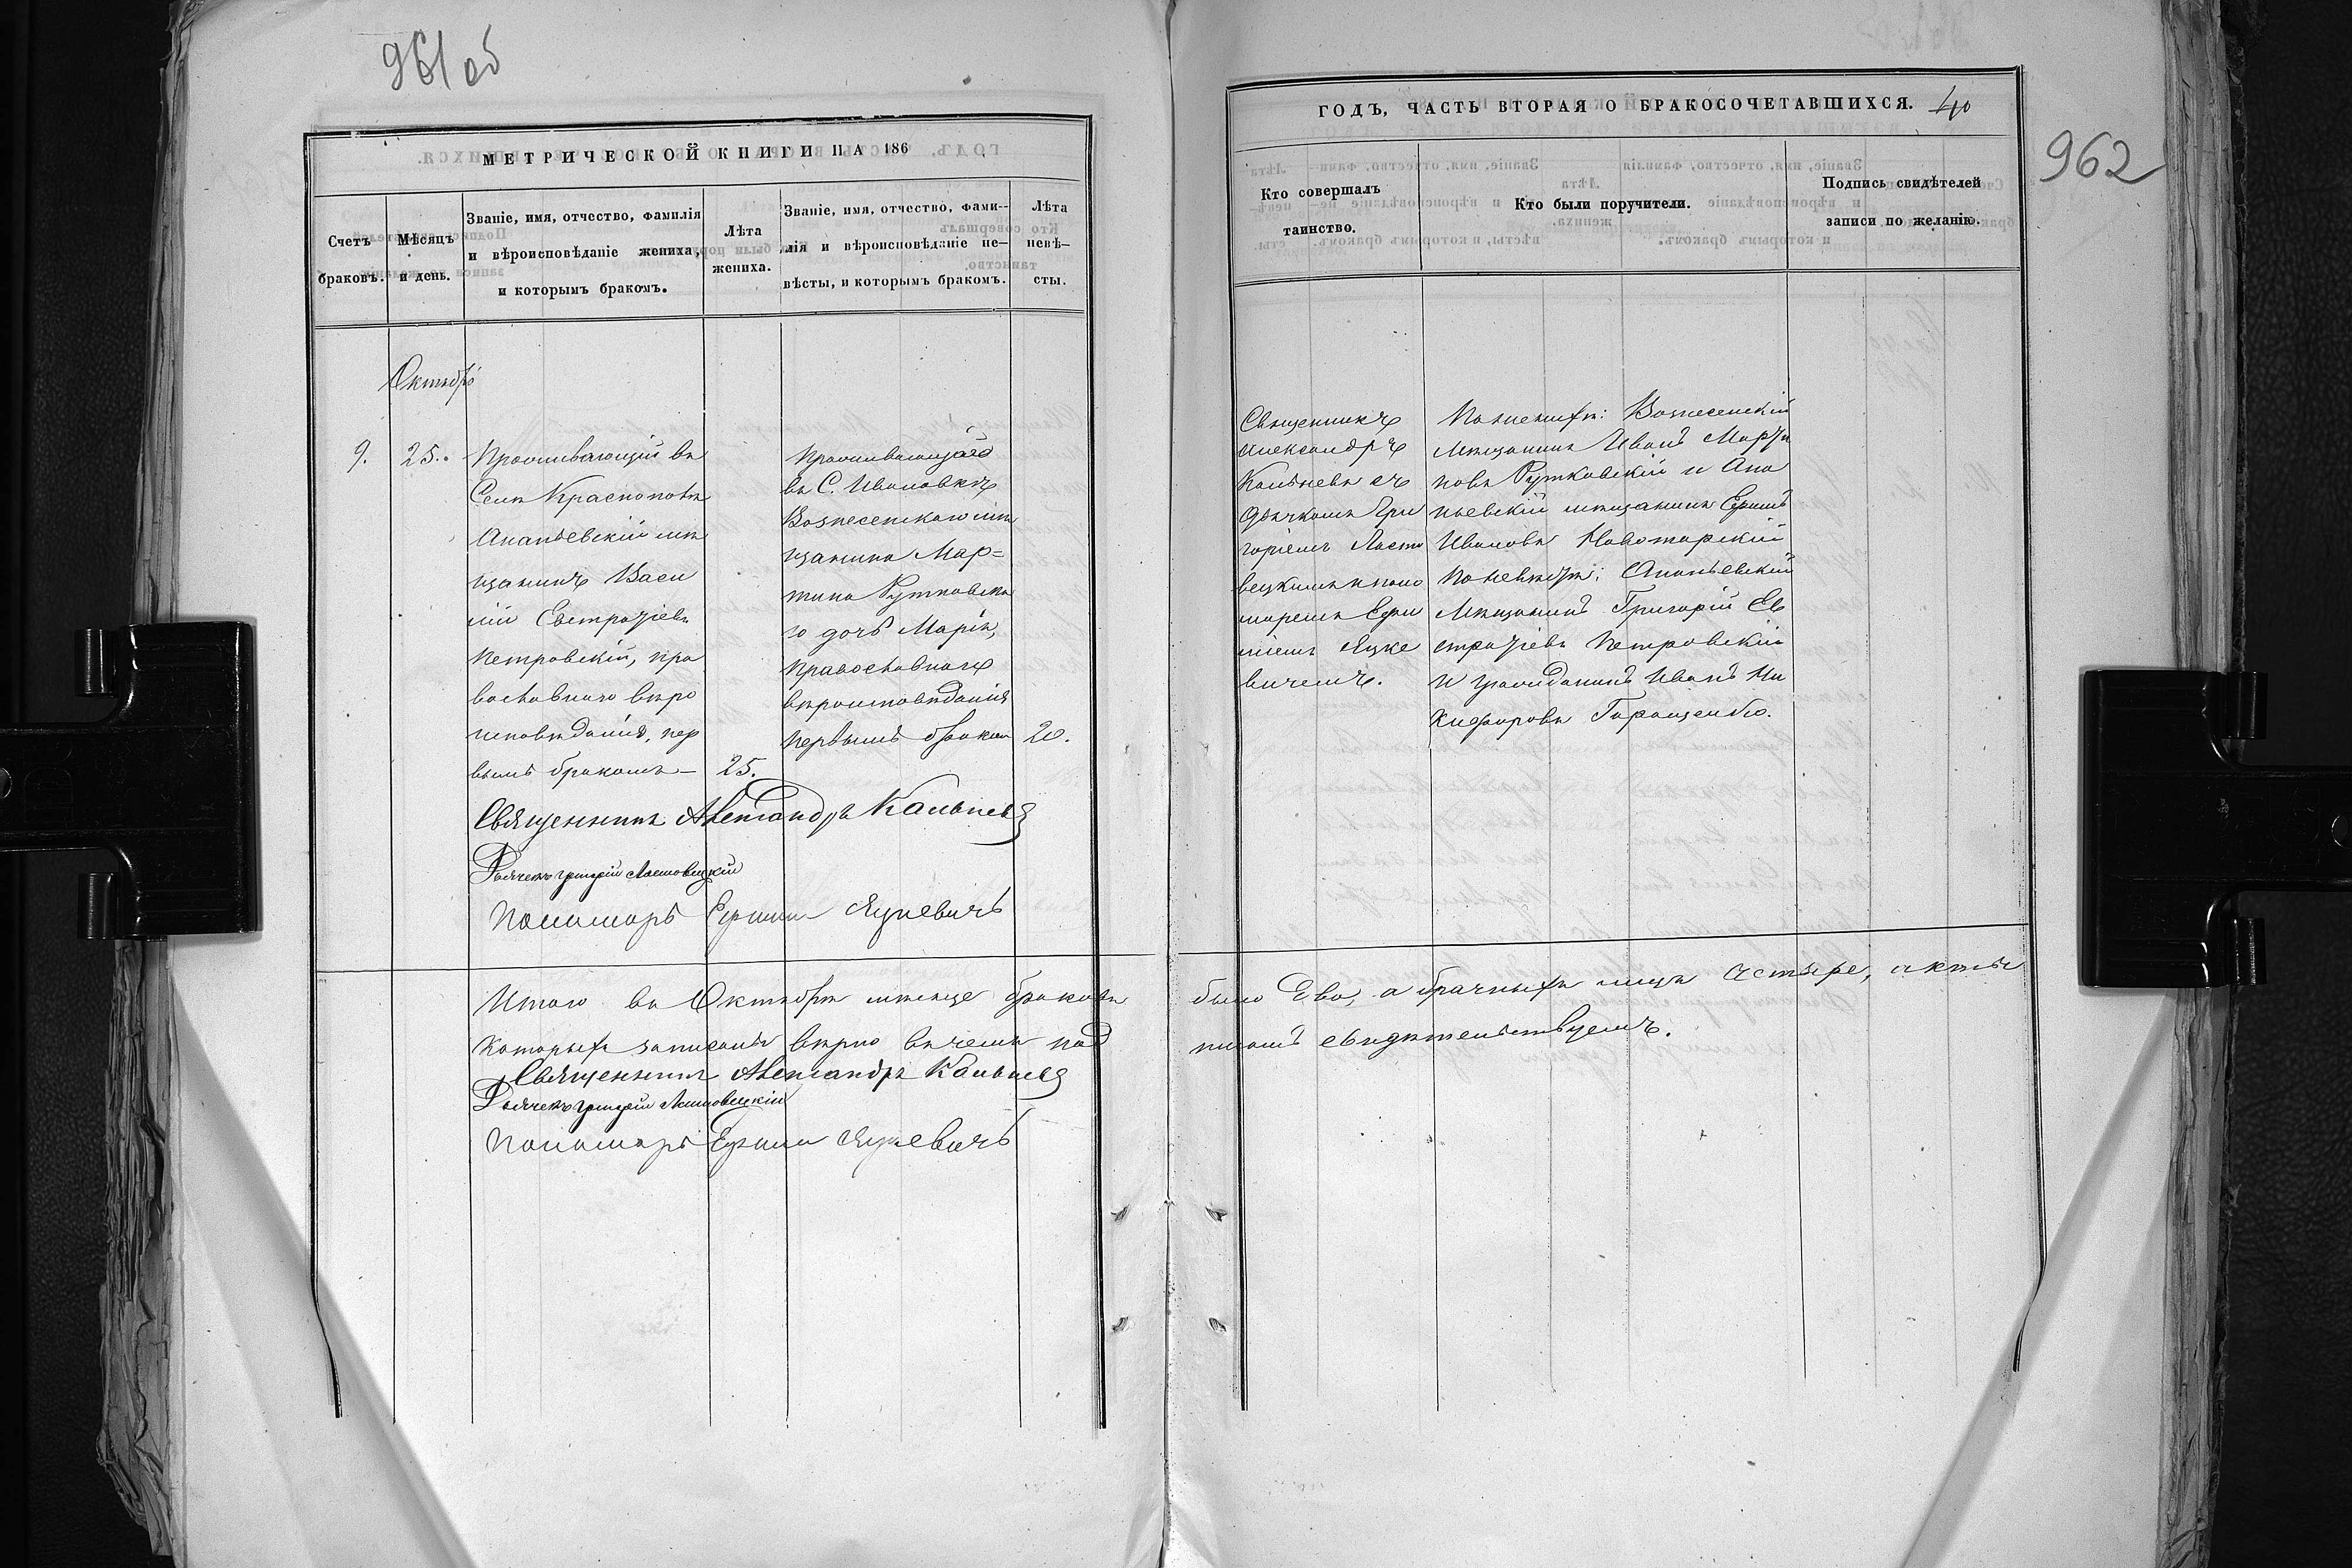 961 об
МЕТРИЧЕСКОЙ КНИГИ НА 186
Счетъ браковъ.
Мѣсяцъ и день.
Званіе, имя, отчество, фамилія
и вѣроисповѣданіе жениха,
и которымъ бракомъ.
Лѣта
жениха.
Званіе, имя, отчество, фами-
лія и вѣроисповѣданіе не-
вѣсты, и которымъ бракомъ.
Лѣта
невѣ-
сты.
Октябрь
9.
25.
Проживающій въ
Селѣ Краснополѣ
Ананьевскій мѣ
щанинъ Васи
лій Евстратіевъ
Петровскій, пра
вославнаго вѣро
исповѣданія, пер
вымъ бракомъ
25.
Проживающаго
въ С. Ивановкѣ
Вознесенскаго мѣ
щанина Мар=
тина Рутковска
го дочь Марія,
Православнаго
вѣроисповѣданія
первымъ бракомъ
20.
Священникъ Александръ Кальневъ
Дьячекъ Григорій Листовецкій
Пономарь Ефимій Яцкевичъ
Итого въ Октябрѣ мѣсяцѣ браковъ
которыхъ записаны вѣрно въ чемъ под
Священникъ Александръ Кальневъ
Дьячекъ Григорій Листовецкій
Пономарь Ефимій Яцкевичъ
ГОДЪ, ЧАСТЬ ВТОРАЯ О БРАКОСОЧЕТАВШИХСЯ. 40
962
Кто совершалъ
таинство.
Кто были поручители.
Подпись свидѣтелей
записи по желанію.
Священникъ
Александръ
Кальневъ съ
дьячкомъ Гри
горіемъ Листо
вецкимъ и поно
маремъ Ефи
міемъ Яцке
вичемъ.
По женихѣ: Вознесенскій
Мѣщанинъ Иванъ Марти
новъ Рутковскій и Ана
ньевскій мѣщанинъ Ефимъ
Ивановъ Новотарскій
По невѣстѣ: Ананьевскій
Мѣщанинъ Григорій Ев
стратіевъ Петровскій
и гражданинъ Иванъ Ни
кифоровъ Геращенко.
было два, а брачныхъ лицъ четыре, акты
писомъ свидѣтельствуемъ.